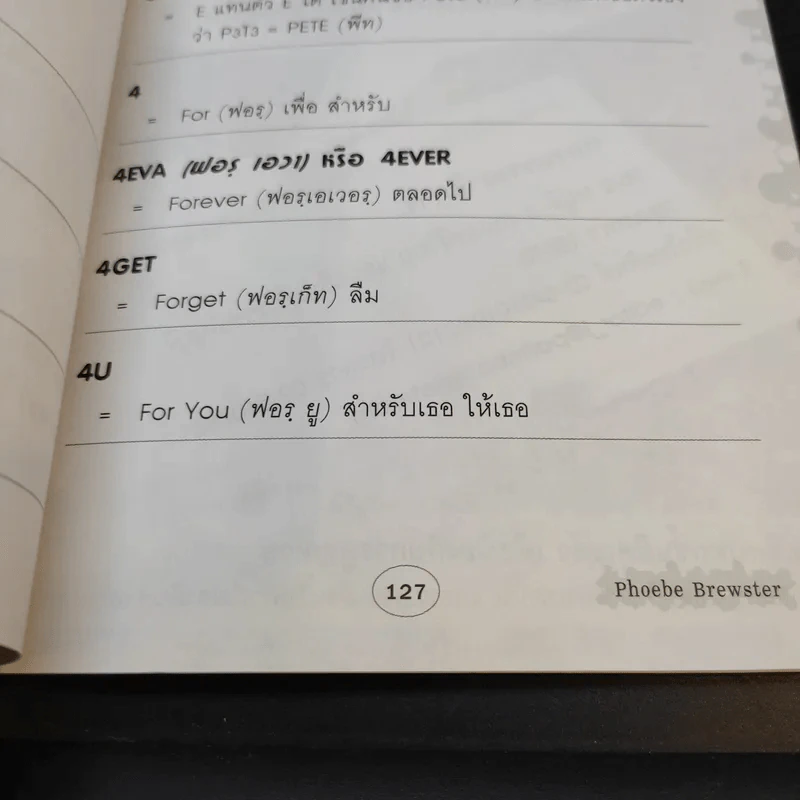 = E แทนตัว E ได้
ว่า P3T3 = PETE (พีท)
4
= For (ฟอรฺ) เพื่อ สำหรับ
4EVA (ฟอรฺ เอวา) หรือ 4EVER
= Forever (ฟอรฺเอเวอรฺ) ตลอดไป
4GET
= Forget (ฟอรฺเก็ท) ลืม
4U
= For You (ฟอรฺ ยู) สำหรับเธอ ให้เธอ
127
Phoebe Brewster